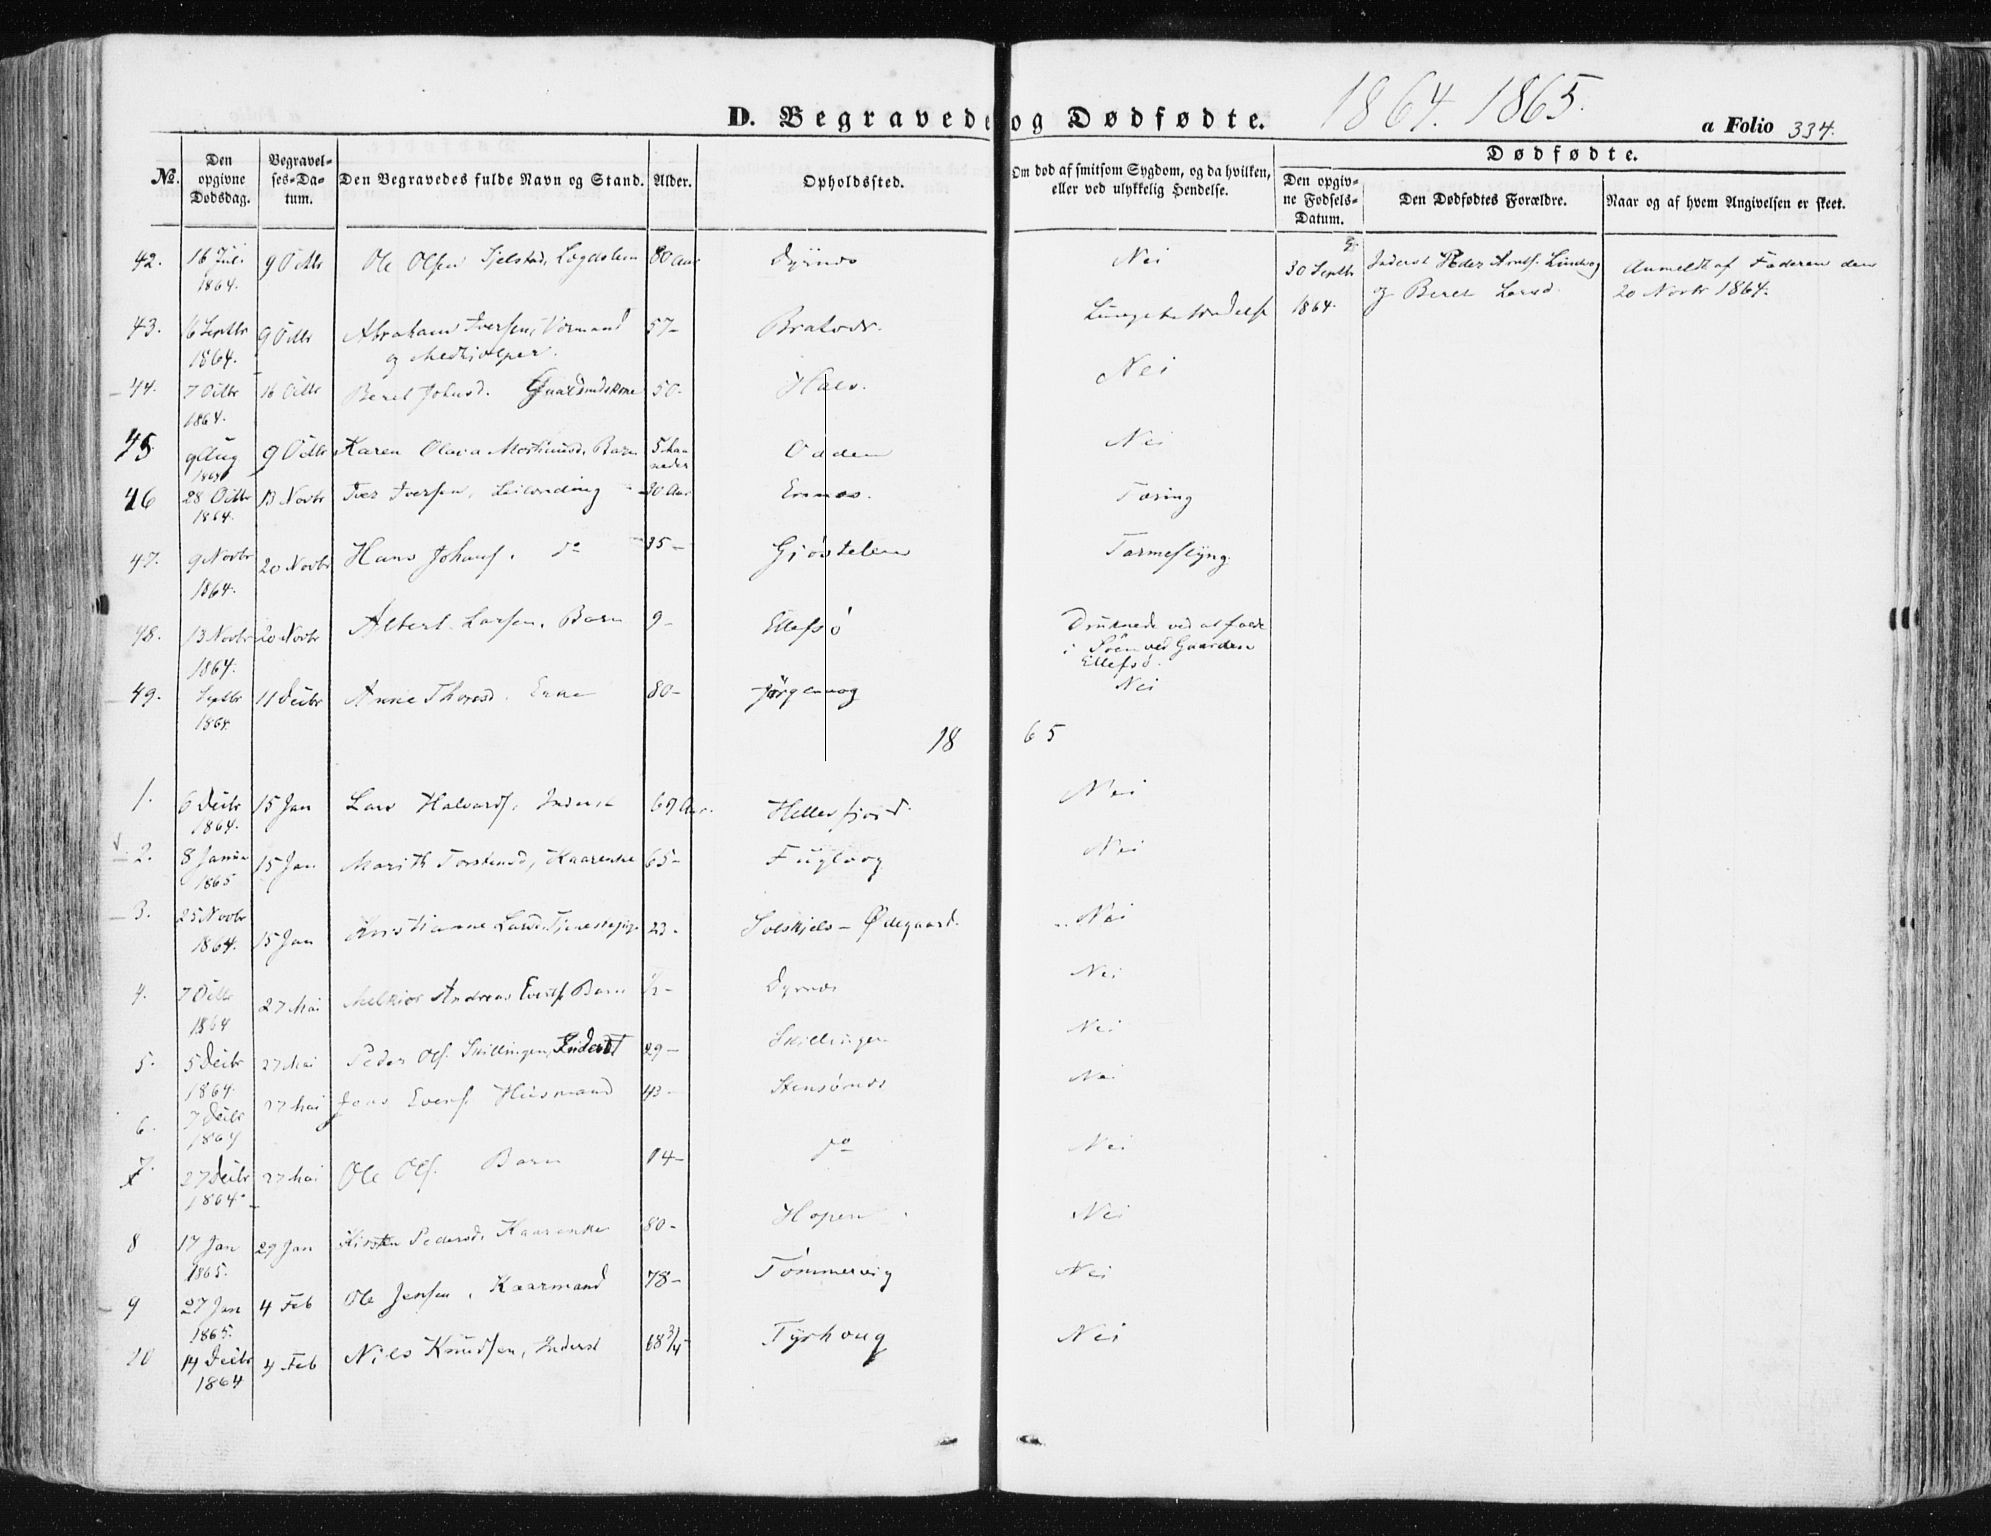 D. Begravede og Dødfødte. 1864. 1865.
a Folio 334.
No.
Den opgivne Dødsdag.
Begravelses-Datum.
Den Begravedes fulde Navn og Stand.
Alder.
Opholdssted.
Om død af smitsom Sygdom, og da hvilken, eller ved ulykkelig Hendelse.
Dødfødte.
Den opgivne Fødsels-Datum.
Den Dødfødtes Forældre.
Naar og af hvem Angivelsen er skeet.
42. 16 Juli 1864. 9 Octbr Ole Olsen 80 Aar Dyrnæs Nei
30 Septbr 1864. Inderst Peder og Beret Larsd. Anmeldt af Faderen den 20 Novbr 1864.
43. 16 Septbr 1864. 9 Octbr Abraham Iversen, Formand og Medhjælper. 57- Bratvær. Lungebetændelse
44. 7 Octbr 1864. 16 Octbr Beret Johnsd. Gaardmandskone 50- Hals. Nei
45 9 Aug 9 Octbr Karen Olava Barn 5 Maaneder Odden Nei
46 28 Octbr 1864. 13 Novbr Iver Iversen, Leilænding 30 Aar Ennæs. Tæring
47. 9 Novbr 1864. 20 Novbr Hans Johans. do 35- Gjøstelen Tarmeslyng
48. 13 Novbr 1864. 20 Novbr Albert Larsen, Barn 9- Ellefsø Druknede ved at falde
i Søen ved Gaarden
Ellefsø.
49. Septbr 1864. 11 Decbr Anne Thoresd. Enke 80- Jørgenvog Nei
18 65
1. 6 Decbr 1864. 15 Jan Lars Halvards, Inderst 69 Aar. Hellesfjord. Nei
2. 8 Januar 1865 15 Jan Marith Torstensd, Kaarenke 65- Fuglvog Nei
3. 25 Novbr 1864. 15 Jan Kristianne Larsd. Tjenestepige 23- Solskjels-Ødegaard. Nei
4. 7 Octbr 1864 27 Mai Melkior Andreas Evertsf. Barn ½- Dyrnæs Nei
5. 5 Decbr 1864. 27 Mai Peder Ols. Skillingen, Inderst 29- Skillingen Nei
6. 7 Decbr 1864 27 Mai Evens. Husmand 43- Stensørnæs Nei
7. 27 Decbr 1864. 27 Mai Ole Ols. Barn 14- do Nei
8 17 Jan 1865. 29 Jan Kirsten Pedersd. Kaarenke 80- Hopen. Nei
9 27 Jan 1865. 4 Feb Ole Jensen, Kaarmand 78- Tømmervig Nei
10 14 Decbr 1864 4 Feb Nils Knudsen, Inderst 68 3/4 Tyrhoug Nei